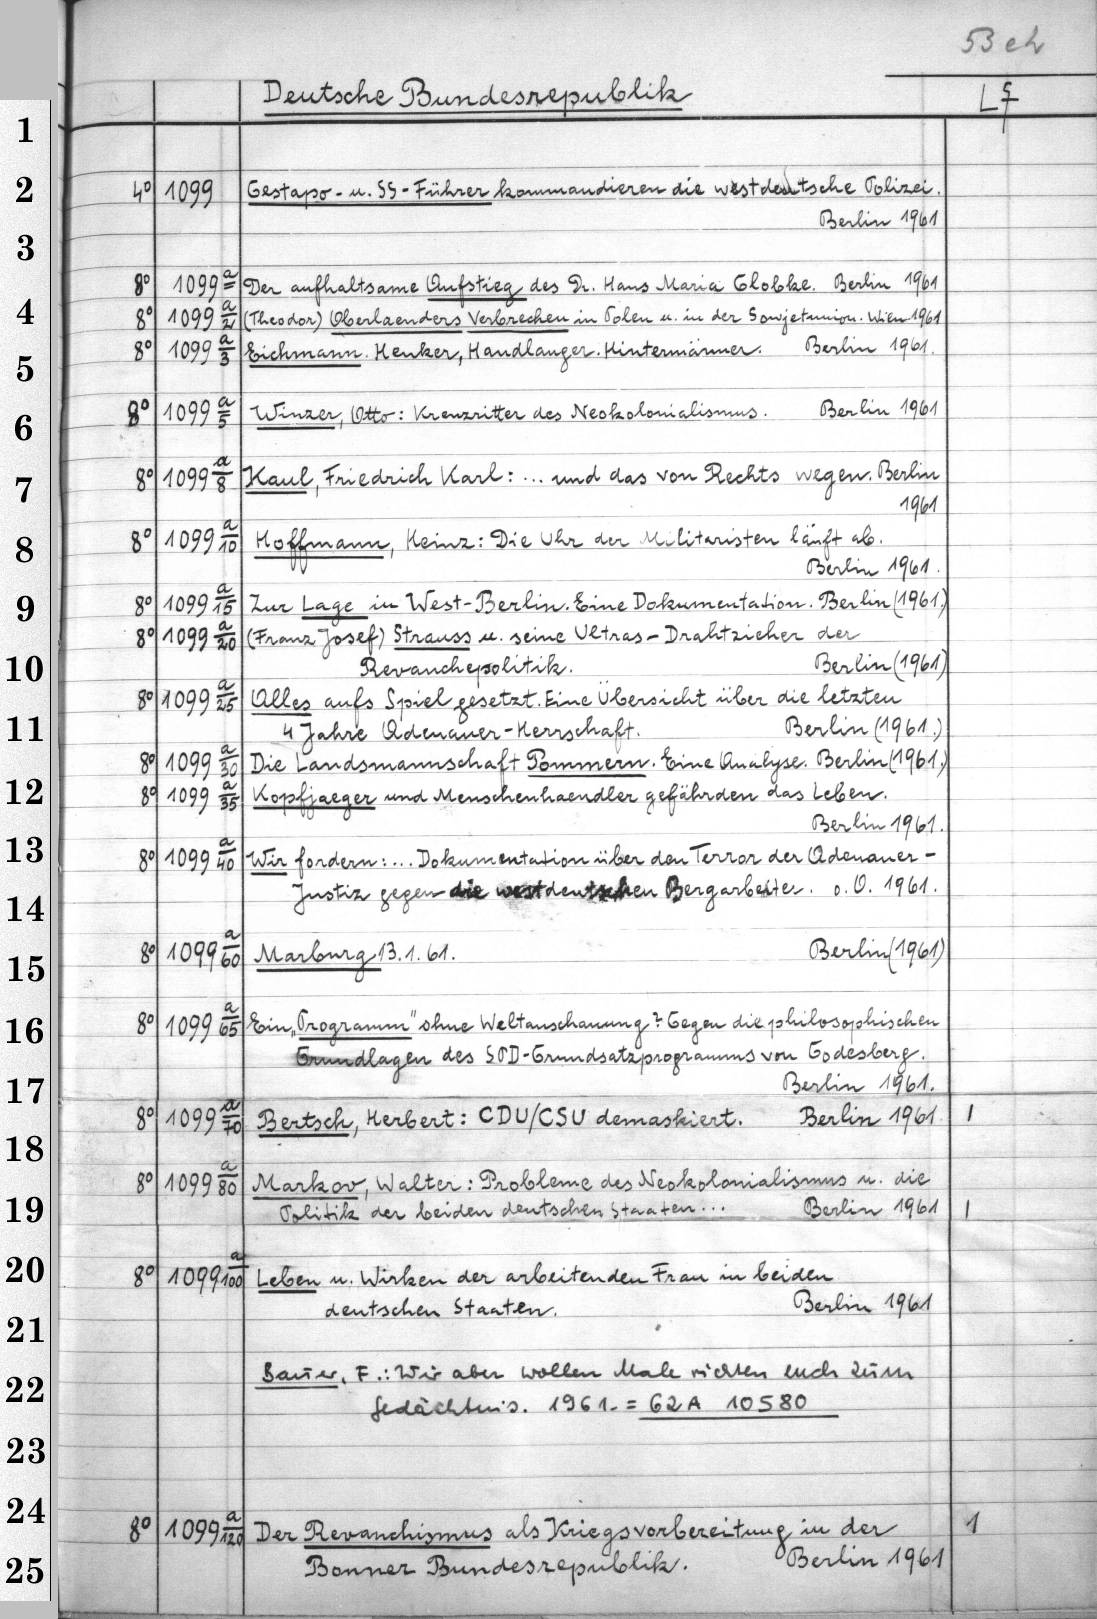 53 eh
Deutsche Bundesrepublik
1
2 4° 1099 Gestapo- u. SS-Führer kommandieren die westdeutsche Polizei.
Berlin 1961
3
8° 1099 a/= Der aufhaltsame Aufstieg des Dr. Hans Maria Globke. Berlin 1961
4 8° 1099 a/2 (Theodor) Oberlaenders Verbrechen in Polen u. in der Sowjetunion. Wien 1961
8° 1099 a/3 Eichmann. Henker, Handlanger. Hintermänner. Berlin 1961.
5
6 8° 1099 a/5 Winzer, Otto: Kreuzritter des Neokolonialismus. Berlin 1961
7 8° 1099 a/8 Kaul, Friedrich Karl: ... und das von Rechts wegen. Berlin
1961
8 8° 1099 a/10 Hoffmann, Heinz: Die Uhr der Militaristen läuft ab.
Berlin 1961.
9 8° 1099 a/15 Zur Lage in West-Berlin. Eine Dokumentation. Berlin (1961.)
8° 1099 a/20 (Franz Josef) Strauss u. seine Ultras - Drahtzieher der
10 Revanchepolitik. Berlin (1961)
8° 1099 a/25 Alles aufs Spiel gesetzt. Eine Übersicht über die letzten
11 4 Jahre Adenauer-Herrschaft. Berlin (1961.)
8° 1099 a/30 Die Landsmannschaft Pommern. Eine Analyse. Berlin (1961.)
12 8° 1099 a/35 Kopfjaeger und Menschenhaendler gefährden das Leben.
Berlin 1961.
13 8° 1099 a/40 Wir fordern: ... Dokumentation über den Terror der Adenauer-
14 Justiz gegen die westdeutschen Bergarbeiter. o. O. 1961.
15 8° 1099 a/60 Marburg 13.1.61. Berlin (1961)
16 8° 1099 a/65 Ein „Programm" ohne Weltanschauung? Gegen die philosophischen
Grundlagen des SPD-Grundsatzprogramms von Godesberg.
17 Berlin 1961.
8° 1099 a/70 Bertsch, Herbert: CDU/CSU demaskiert. Berlin 1961 1
18
8° 1099 a/80 Markov, Walter: Probleme des Neokolonialismus u. die
19 Politik der beiden deutschen Staaten... Berlin 1961 1
20 8° 1099 a/100 Leben u. Wirken der arbeitenden Frau in beiden
21 deutschen Staaten. Berlin 1961
22 Bauer, F.: Wir aber wollen Male richten euch zum
Gedächtnis. 1961. = 62 A 10580
23
24 8° 1099 a/120 Der Revanchismus als Kriegsvorbereitung in der 1
25 Bonner Bundesrepublik. Berlin 1961